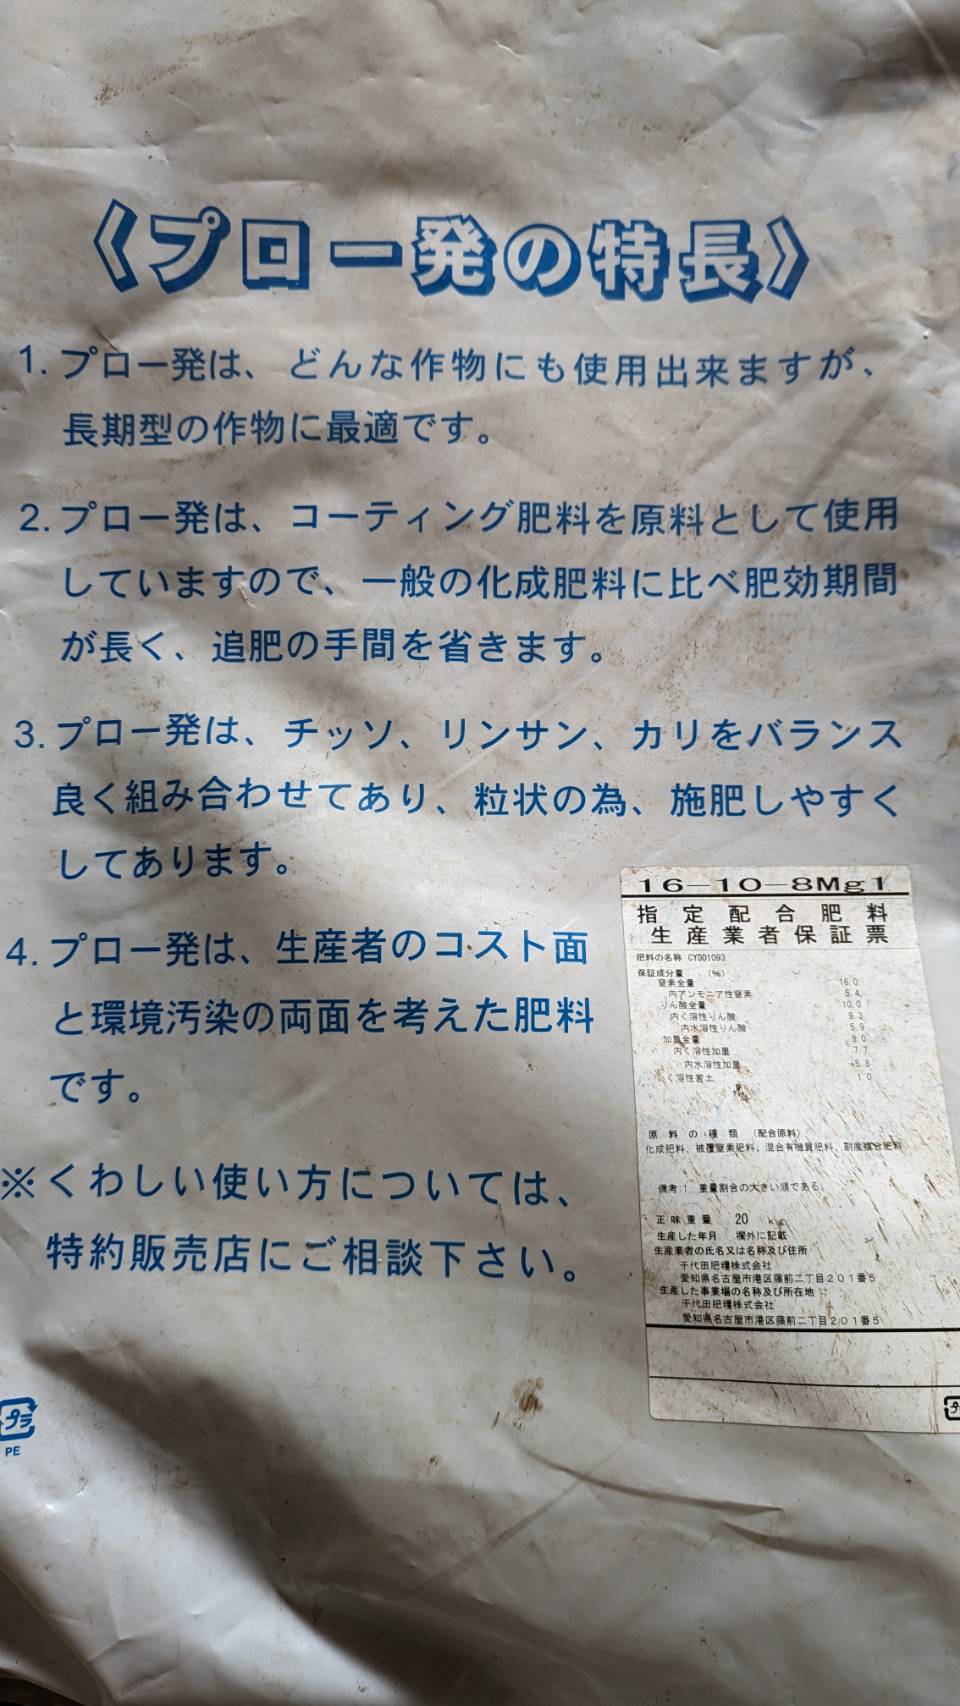 〈プロー発の特長〉
1. プロー発は、どんな作物にも使用出来ますが、
長期型の作物に最適です。
2. プロー発は、コーティング肥料を原料として使用
していますので、一般の化成肥料に比べ肥効期間
が長く、追肥の手間を省きます。
3. プロー発は、チッソ、リンサン、カリをバランス
良く組み合わせてあり、粒状の為、施肥しやすく
してあります。
4. プロー発は、生産者のコスト面
と環境汚染の両面を考えた肥料
です。
※くわしい使い方については、
特約販売店にご相談下さい。
プラ
PE
16-10-8Mg1
指定配合肥料
生産業者保証票
肥料の名称 CY001093
保証成分量 (%)
窒素全量 16.0
内アンモニア性窒素 5.4
りん酸全量 10.0
内く溶性りん酸 9.3
内水溶性りん酸 5.9
加里全量 8.0
内く溶性加里 7.7
内水溶性加里 5.8
く溶性苦土 1.0
原料の種類 (配合原料)
化成肥料、被覆窒素肥料、混合有機質肥料、副産複合肥料
備考:1 重量割合の大きい順である。
正味重量 20 kg
生産した年月 欄外に記載
生産業者の氏名又は名称及び住所
千代田肥糧株式会社
愛知県名古屋市港区藤前二丁目201番5
生産した事業場の名称及び所在地
千代田肥糧株式会社
愛知県名古屋市港区藤前二丁目201番5